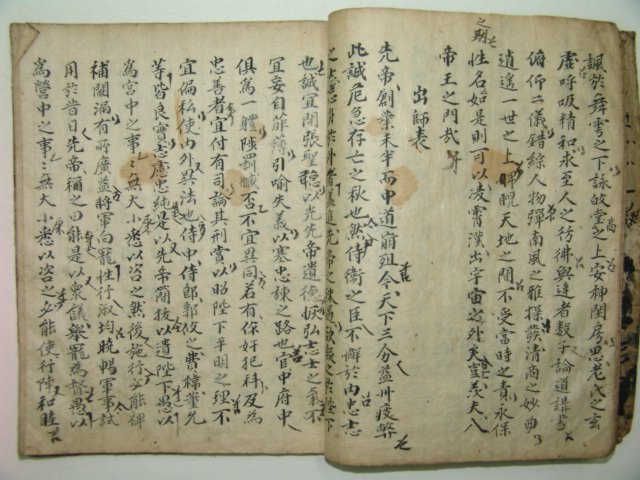 諷於舞雩之下詠歸高堂之上安神閨房思老氏之玄
虛呼吸精和求至人之彷彿與達者數子論道講書
俯仰二儀錯綜人物彈南風之雅操發淸商之妙曲
逍遙一世之上睥睨天地之間不受當時之責永保
性名如是則可以凌霄漢出宇宙之外矣豈羨夫入
帝王之門哉
出師表
先帝創業未半而中道崩殂今天下三分益州疲弊
此誠危急存亡之秋也然侍衛之臣不懈於內忠志
之士忘身於外者盖追先帝之殊遇欲報之於陛下
也誠宜開張聖聽以光先帝遺德恢弘志士之氣不
宜妄自菲薄引喩失義以塞忠諫之路也宮中府中
俱爲一體陟罰臧否不宜異同若有作奸犯科及爲
忠善者宜付有司論其刑賞以昭陛下平明之理不
宜偏私使內外異法也侍中侍郞郭攸之費禕董允
等皆良實志慮忠純是以先帝簡拔以遺陛下愚以
爲宮中之事事無大小悉以咨之然後施行必能裨
補闕漏有所廣益將軍向寵性行淑均曉暢軍事試
用於昔日先帝稱之曰能是以衆議擧寵爲督愚以
爲營中之事事無大小悉以咨之必能使行陣和睦